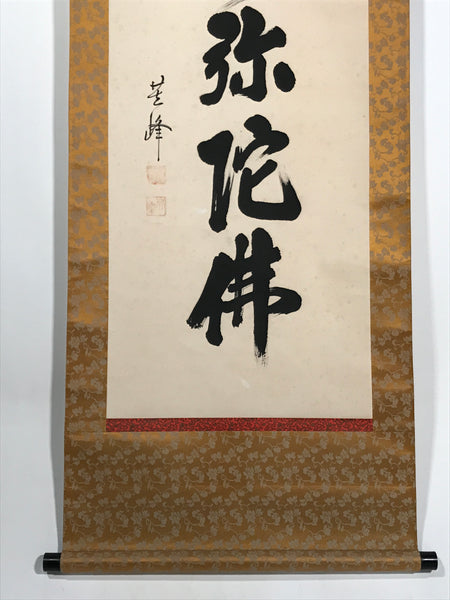 弥陀佛
峰